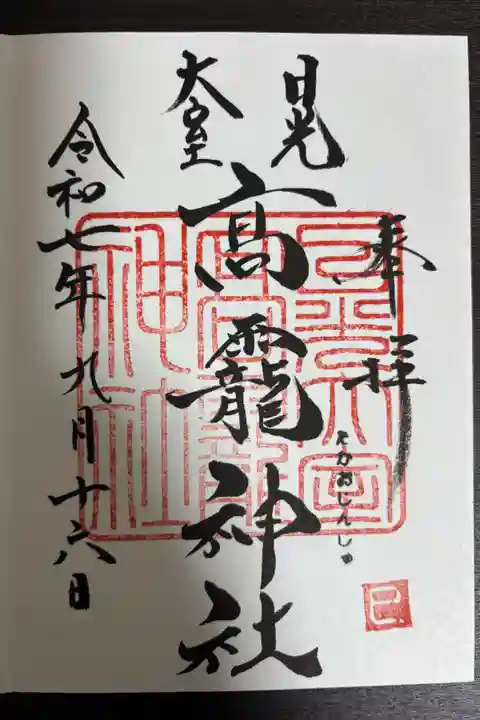 日光
奉拝
たかおじんじゃ
巳
大室
高龗神社
令和七年九月十六日